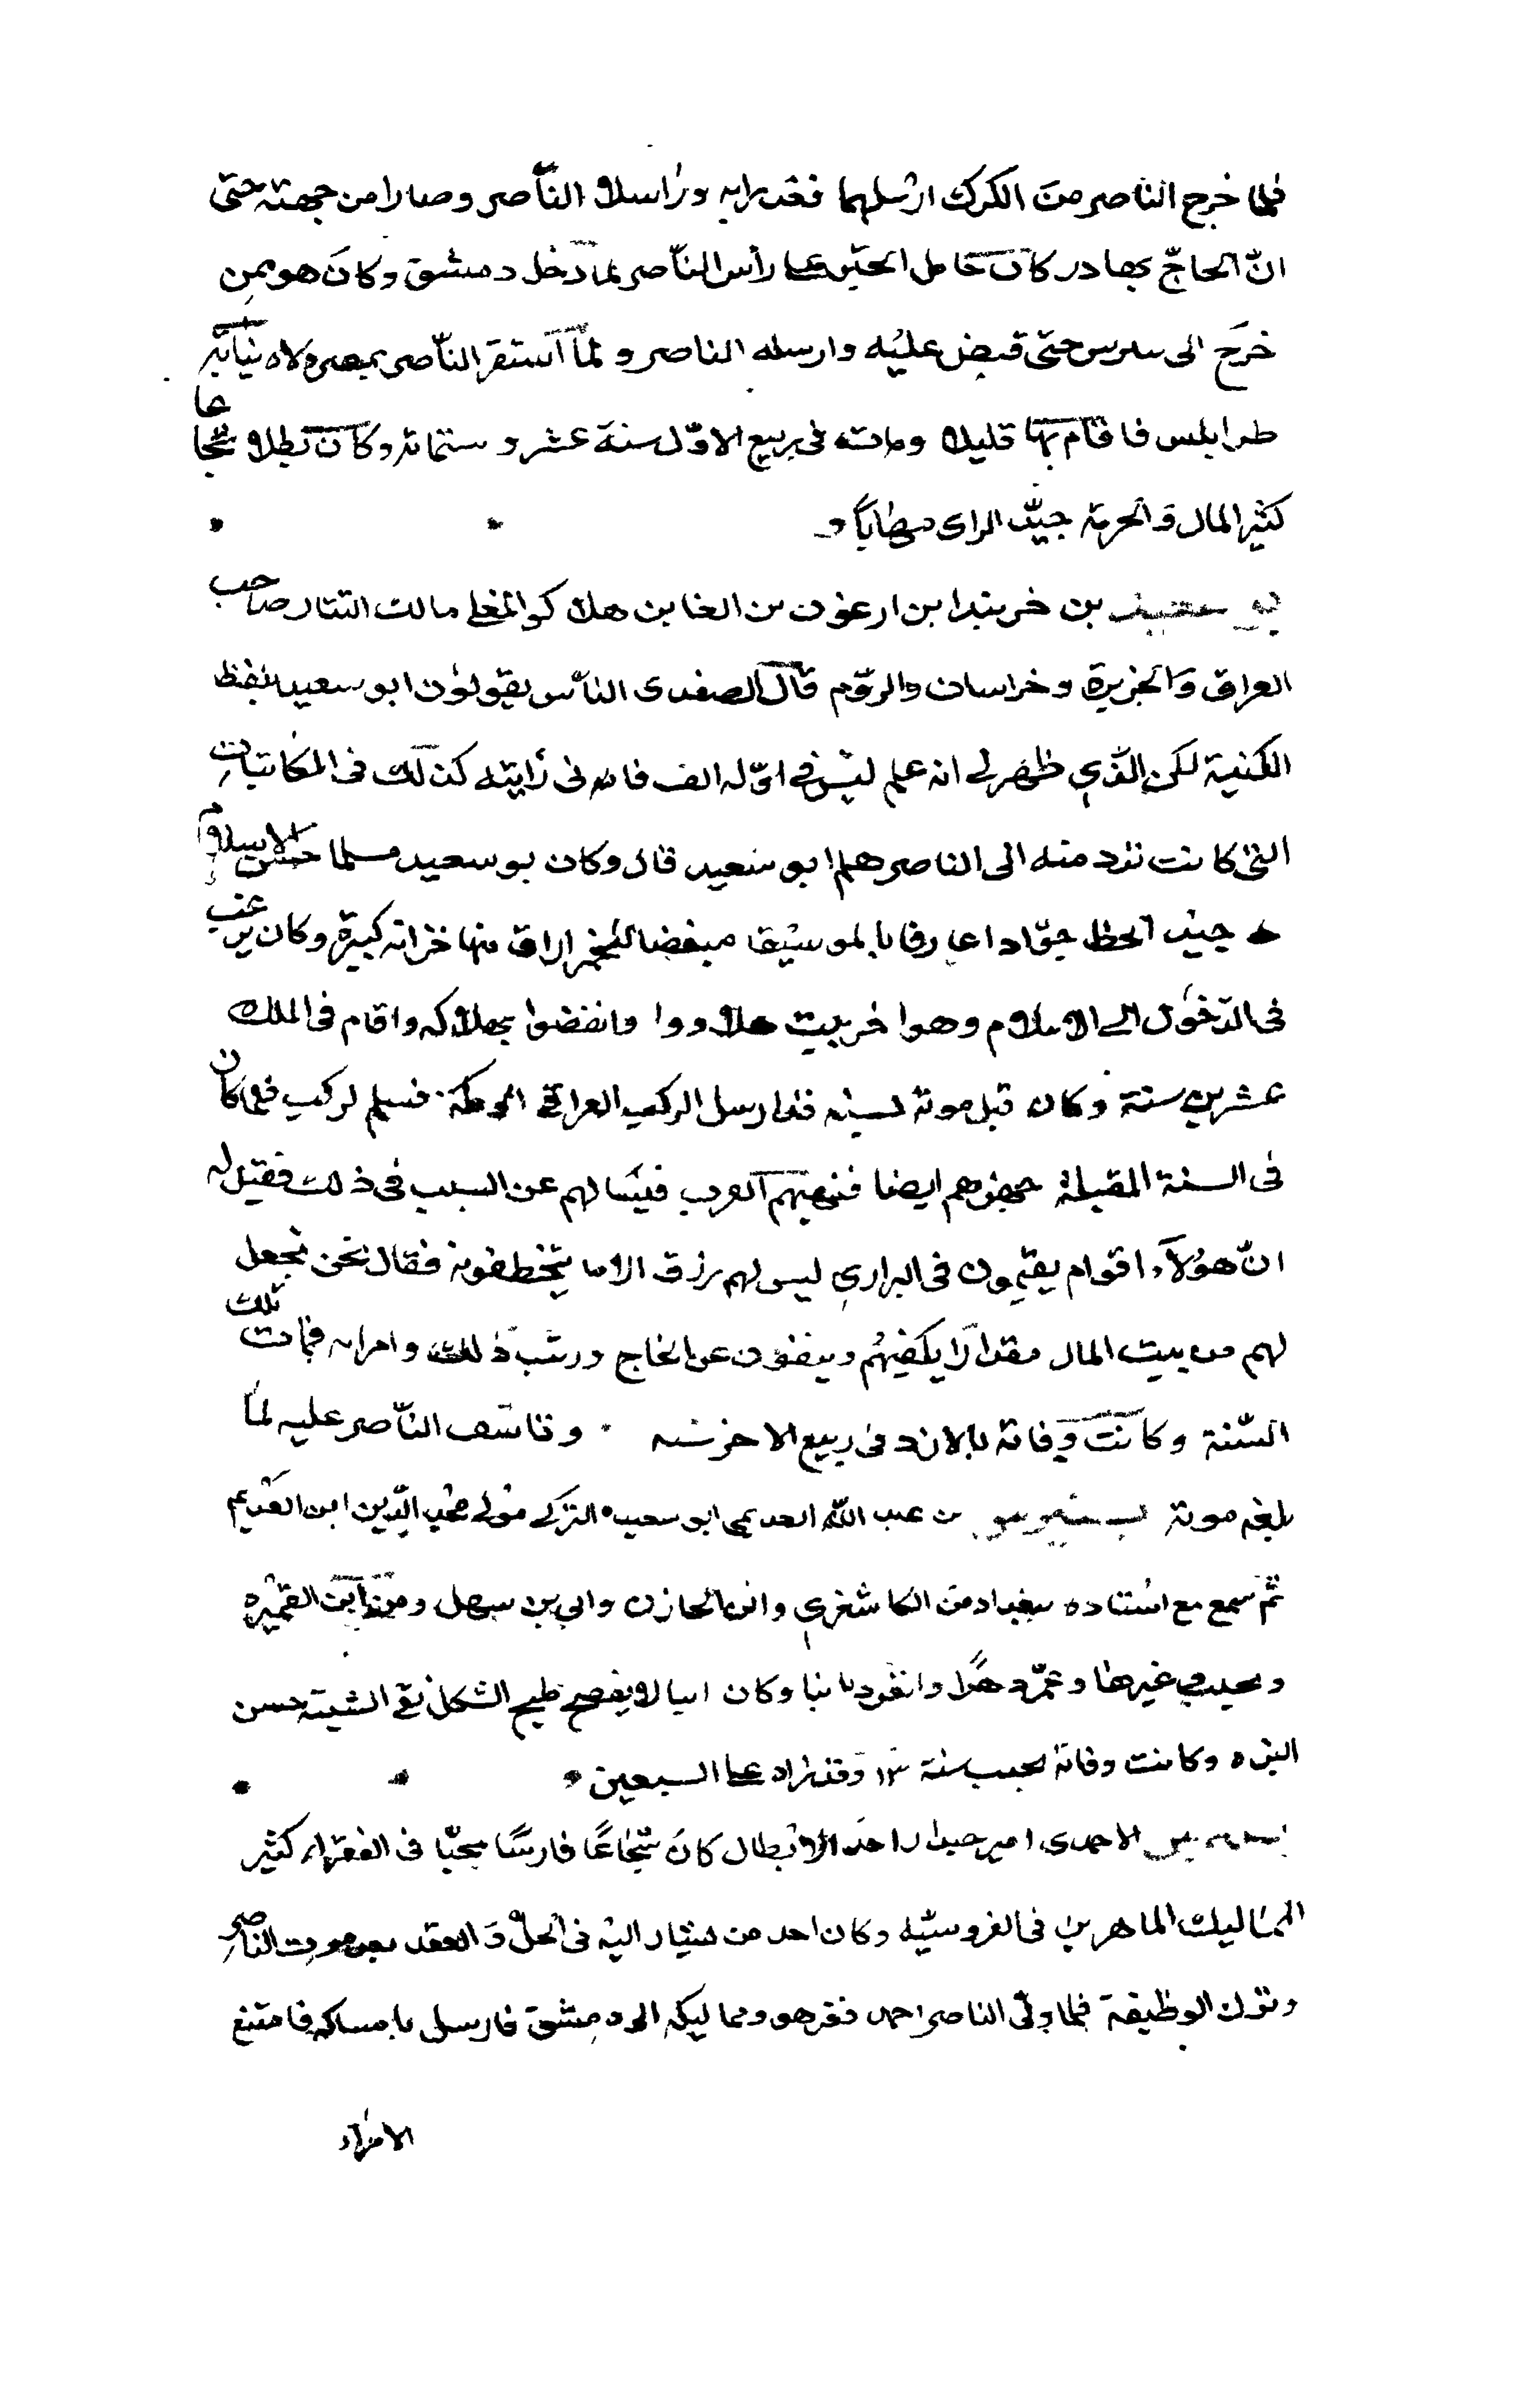 فلما خرج الناصر من الكرك ارسلهما فغدرا به وراسلا الناصر وصارا من جهته حتى
انّ الحاجّ بهادر كان حامل الجتر على رأس النّاصر لما دخل دمشق وكان هو ممن
خرج الى بيبرس حتى قبض عليه وارسله الناصر و لمّا استقر النّاصر بمصر ولاه نيابة
طرابلس فاقام بها قليلا ومات فى ربيع الاوّل سنة عشر وستمائة وكان بطلا شجاعا
كثير المال والحرمة جيّد الراى مهابًا
بو سعيد بن خربندا بن ارغون بن ابغا بن هلاكو المغلى مالك التتار صاحب
العراق والجزيرة وخراسان والرّوم قال الصفدى الناس يقولون ابو سعيد بلفظ
الكنية لكن الذي ظهر لي انه علم ليس في اوّله الف فانى رايته كذلك فى المكاتبات
التى كانت ترد منه الى الناصر هكذا بو سعيد قال وكان بو سعيد مسلما حسن الاسلام
جيد الخط جوّادا عارفا بالموسيقا مبغضا للخمر اراق منها خزانة كبيرة وكان يرغب
فى الدّخول الى الاسلام وهو اخر بيت هلاووا وانقضوا بهلاكه واقام فى الملك
عشرين سنة وكان قبل موته بسنة قد ارسل الركب العراقي الى مكة فسلم الركب فلما كان
فى السنة المقبلة جهزهم ايضا فنهبهم العرب فسالهم عن السبب فى ذلك فقيل له
انّ هؤلآء اقوام يقيمون فى البراري ليس لهم رزق الا ما يتخطفونه فقال نحن نجعل
لهم من بيت المال مقدارًا يكفيهم ويكفون عن الحاج ورتب ذلك وامر به فمات تلك
السّنة وكانت وفاته بالاردو فى ربيع الاخر سنه وتاسّف النّاصر عليه لما
بلغه موته بيبرس بن عبد اللّه العديمي ابو سعيد التركي مولى مجد الدّين ابن العديم
ثمّ سمع مع استاده ببغداد من الكاشغري وابن الخازن وابي بن سهل ومن ابن القميره
وبحلب وغيرها وعمّر دهرًا وانفرد وكان اميا لا يفصح مليح الشكل نقي الشيبة حسن
البزه وكانت وفاته بحلب سنة ١٣ وقد زاد على السبعين
بيبرس الاحمدى امير جندار احد الابطال كان شجاعًا فارسًا محبّا فى الفقراء كثير
المماليك الماهرين فى الفروسيّه وكان احد من يشار اليه فى الحلّ والعقد بعد موت الناصر
وترك الوظيفة فلما ولّى الناصر احمد ففر هو ومماليكه الى دمشق فارسل بامساكه فامتنع
الامراء